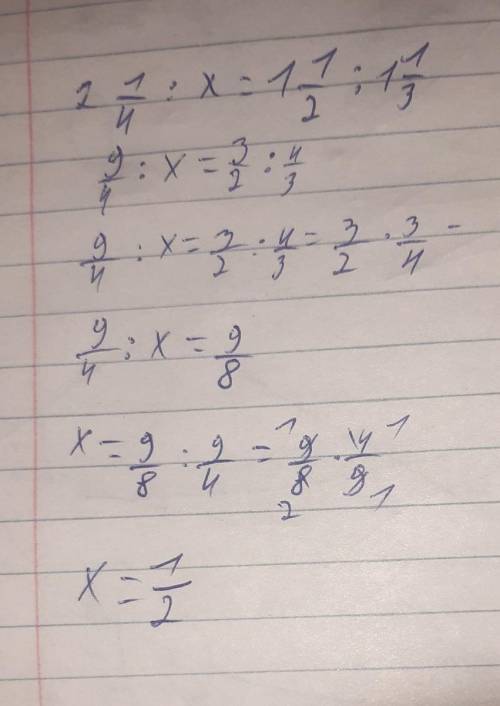 2 1/4 : x = 1 1/2 : 1 1/3
9/4 : x = 3/2 : 4/3
9/4 : x = 3/2 : 4/3 = 3/2 · 3/4 =
9/4 : x = 9/8
x = 9/8 : 9/4 = 1 9/8 2 · 4/9 1 1
x = 1/2